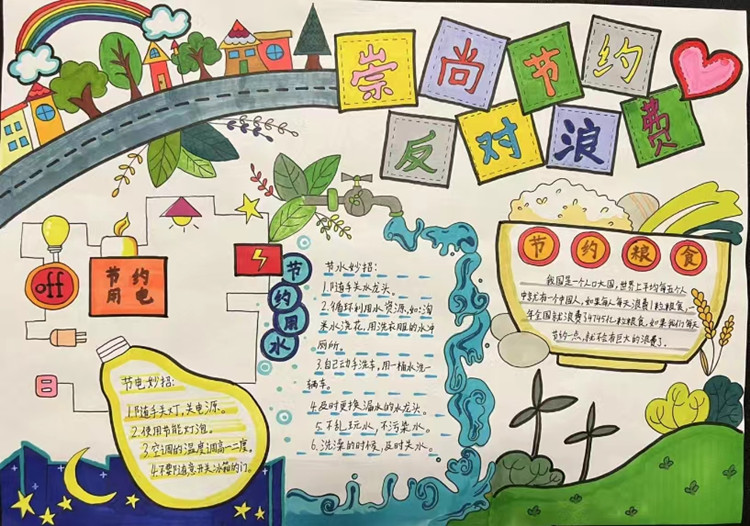 崇尚节约
反对浪费
off
节约
用电
节电妙招:
1.随手关灯,关电源。
2.使用节能灯泡。
3.空调的温度调高一二度。
4.不要随意开关冰箱的门。
节约用水
节水妙招:
1.随手关水龙头。
2.循环利用水资源,如淘
米水洗花,用洗衣服的水冲
厕所。
3.自己动手洗车,用一桶水洗一
辆车。
4.及时更换漏水的水龙头。
5.不乱玩水,不污染水。
6.洗澡的时候,及时关水。
节约粮食
我国是一个人口大国,世界上平均每五个人
中就有一个中国人,如果每人每天浪费1粒粮食,一
年全国就浪费54745亿粒粮食,如果我们每天
节约一点,就不会有巨大的浪费了。